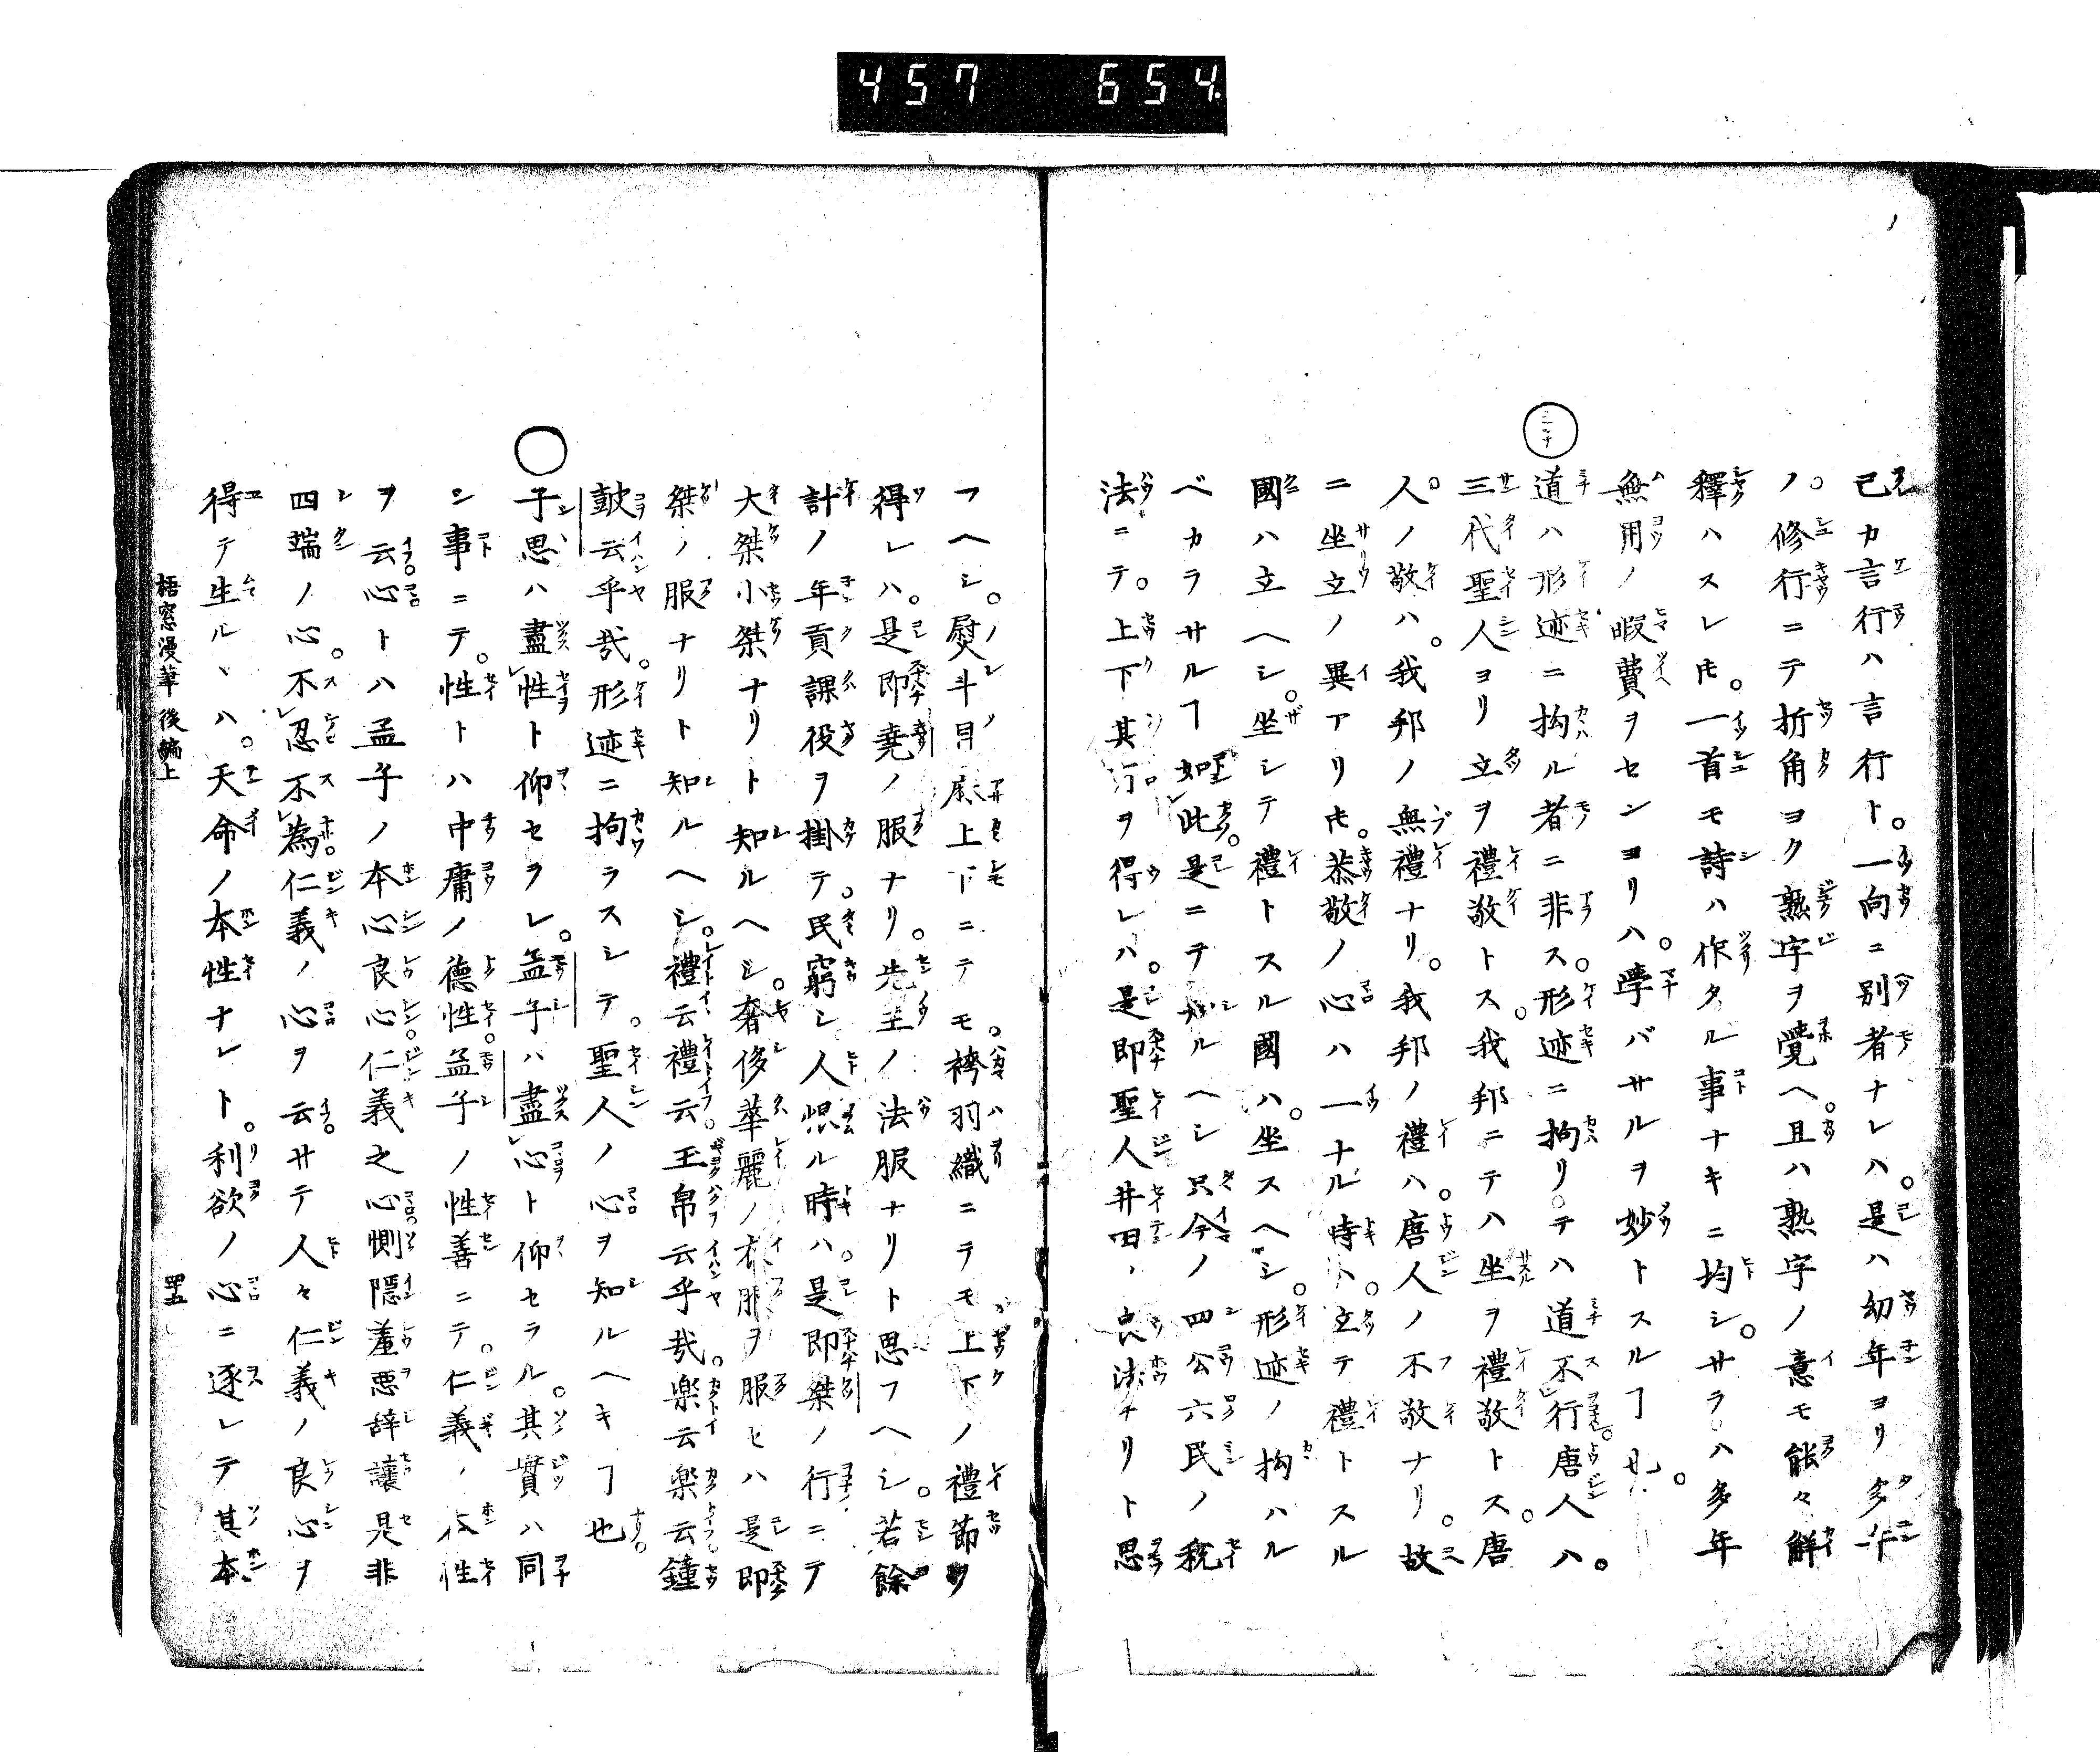 457 654
己カ言行ハ言行ト。一向ニ別者ナレハ。是ハ幼年ヨリ多年
ノ。修行ニテ折角ヨク熟字ヲ覺ヘ。且ハ熟字ノ意モ能々解
釋ハスレ𪜈。一首モ詩ハ作タル事ナキニ均シ。サラハ多年
無用ノ暇費ヲセンヨリハ。學バサルヲ妙トスルヿ也。
道ハ形迹ニ拘ル者ニ非ス。形迹ニ拘リテハ道不行唐人ハ。
三代聖人ヨリ立ヲ禮敬トス。我邦ニテハ坐ヲ禮敬トス。唐
人ノ敬ハ。我邦ノ無禮ナリ。我邦ノ禮ハ。唐人ノ不敬ナリ。故
ニ坐立ノ異アリ𪜈。恭敬ノ心ハ一ナル時ハ。立テ禮トスル
國ハ立ヘシ。坐シテ禮トスル國ハ。坐スヘシ。形迹ノ拘ハル
ベカラサルヿ如此。是ニテ知ルヘシ只今ノ四公六民ノ税
法ニテ。上下其所ヲ得レハ。是即聖人井田ノ良法ナリト思
フヘシ。熨斗目麻上下ニテモ。袴羽織ニテモ上下ノ禮節ヲ
得レハ。是即堯ノ服ナリ。先王ノ法服ナリト思フヘシ。若餘
計ノ年貢課役ヲ掛テ。民窮シ人怨ル時ハ。是即桀ノ行ニテ
大桀小桀ナリト知ルヘシ。奢侈華麗ノ衣服ヲ服セハ是即
桀ノ服ナリト知ルヘシ。禮云禮云。玉帛云乎哉。楽云楽云鐘
鼓云乎哉。形迹ニ拘ラスシテ。聖人ノ心ヲ知ルヘキヿ也。
子思ハ盡性ト仰セラレ。孟子ハ盡心ト仰セラル。其實ハ同
シ事ニテ。性トハ中庸ノ德性。孟子ノ性善ニテ。仁義ノ本性
ヲ云。心トハ孟子ノ本心良心。仁義之心。惻隱羞悪辞讓是非
四端ノ心。不忍不為仁義ノ心ヲ云。サテ人々仁義ノ良心ヲ
得テ生ルヽハ。天命ノ本性ナレト。利欲ノ心ニ逐レテ其本
梧窓漫筆 後編上 四五